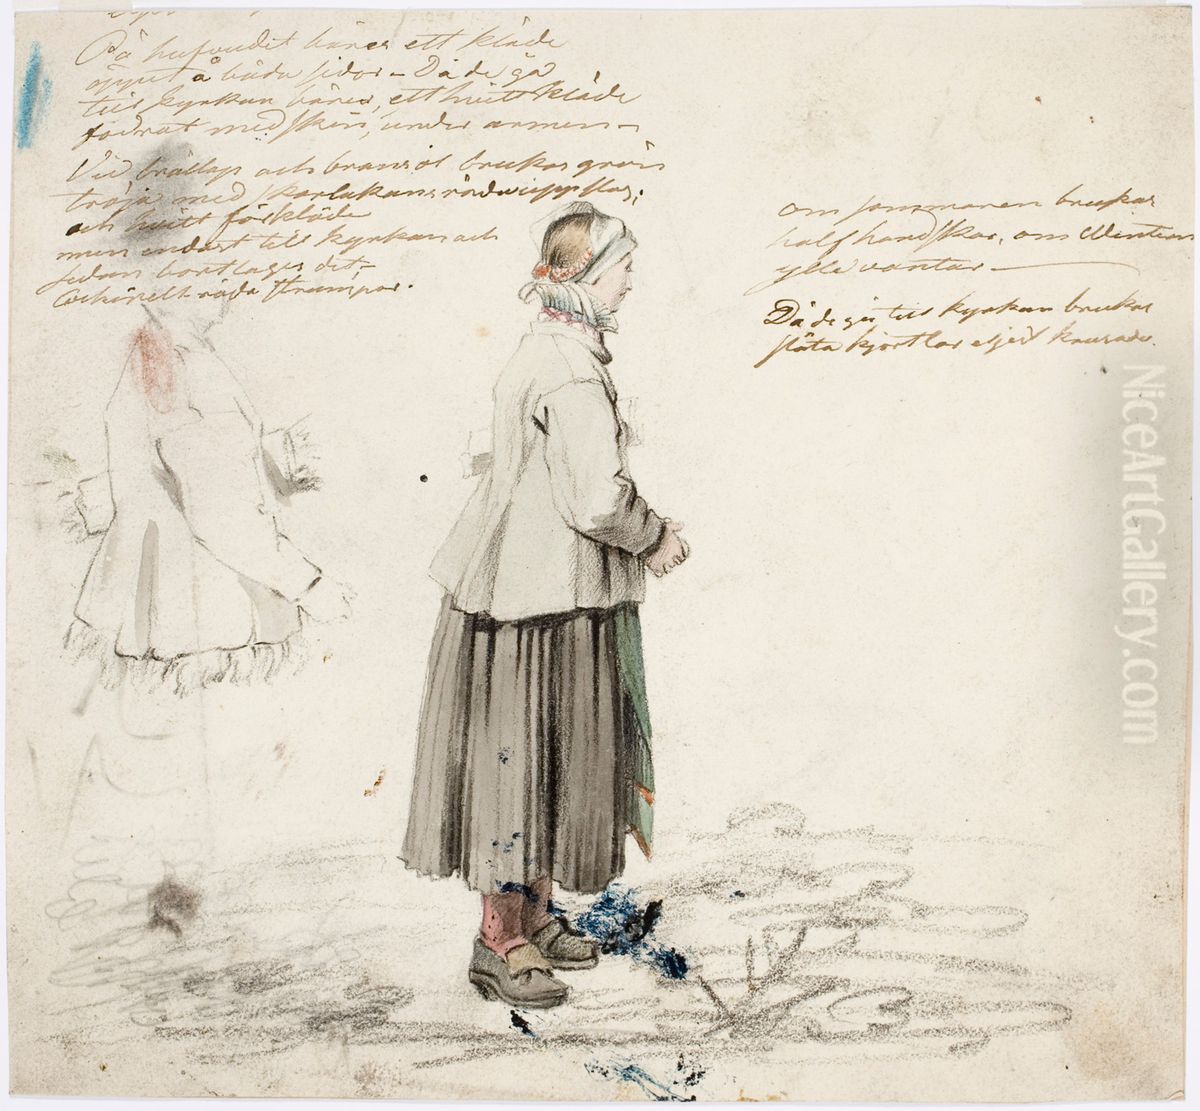 På hufvudet bäres ett kläde
öppet å båda sidor – Då de gå
till kyrkan bäres, ett hvitt kläde
fodrat med skin, under armen –
Vid bröllop och brukas grön
tröja med skarlakans röda uppslag;
och hvitt förkläde
men endast till kyrkan och
sedan borttages det,
röda strumpor.
om sommaren brukas
halfhandskar, om Wintern
ylle vantar –
Då de gå till kyrkan brukas
släta kjortlar ejest
NiceArtGallery.com